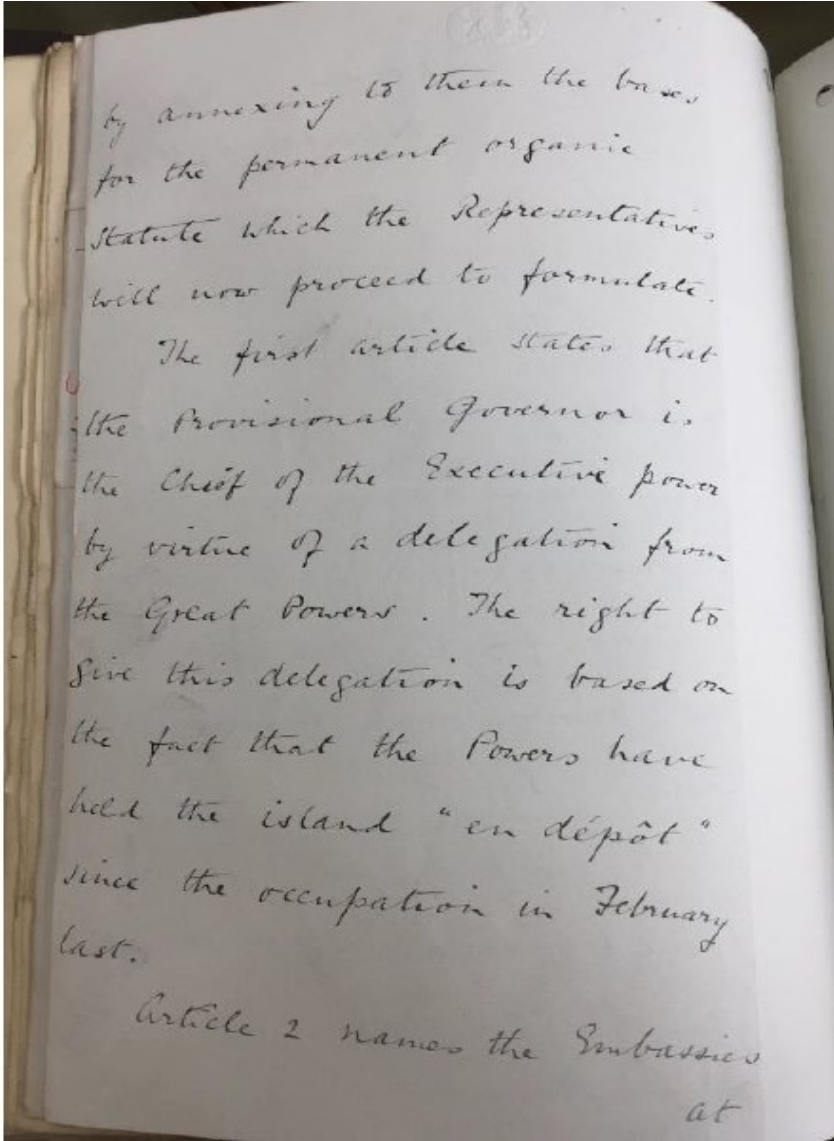 by annexing to them the bases
for the permanent organic
Statute which the Representatives
will now proceed to formulate.
The first article states that
the Provisional Governor is
the Chief of the Executive power
by virtue of a delegation from
the Great Powers. The right to
give this delegation is based on
the fact that the Powers have
held the island "en dépôt"
since the occupation in February
last.
Article 2 names the Embassies
at